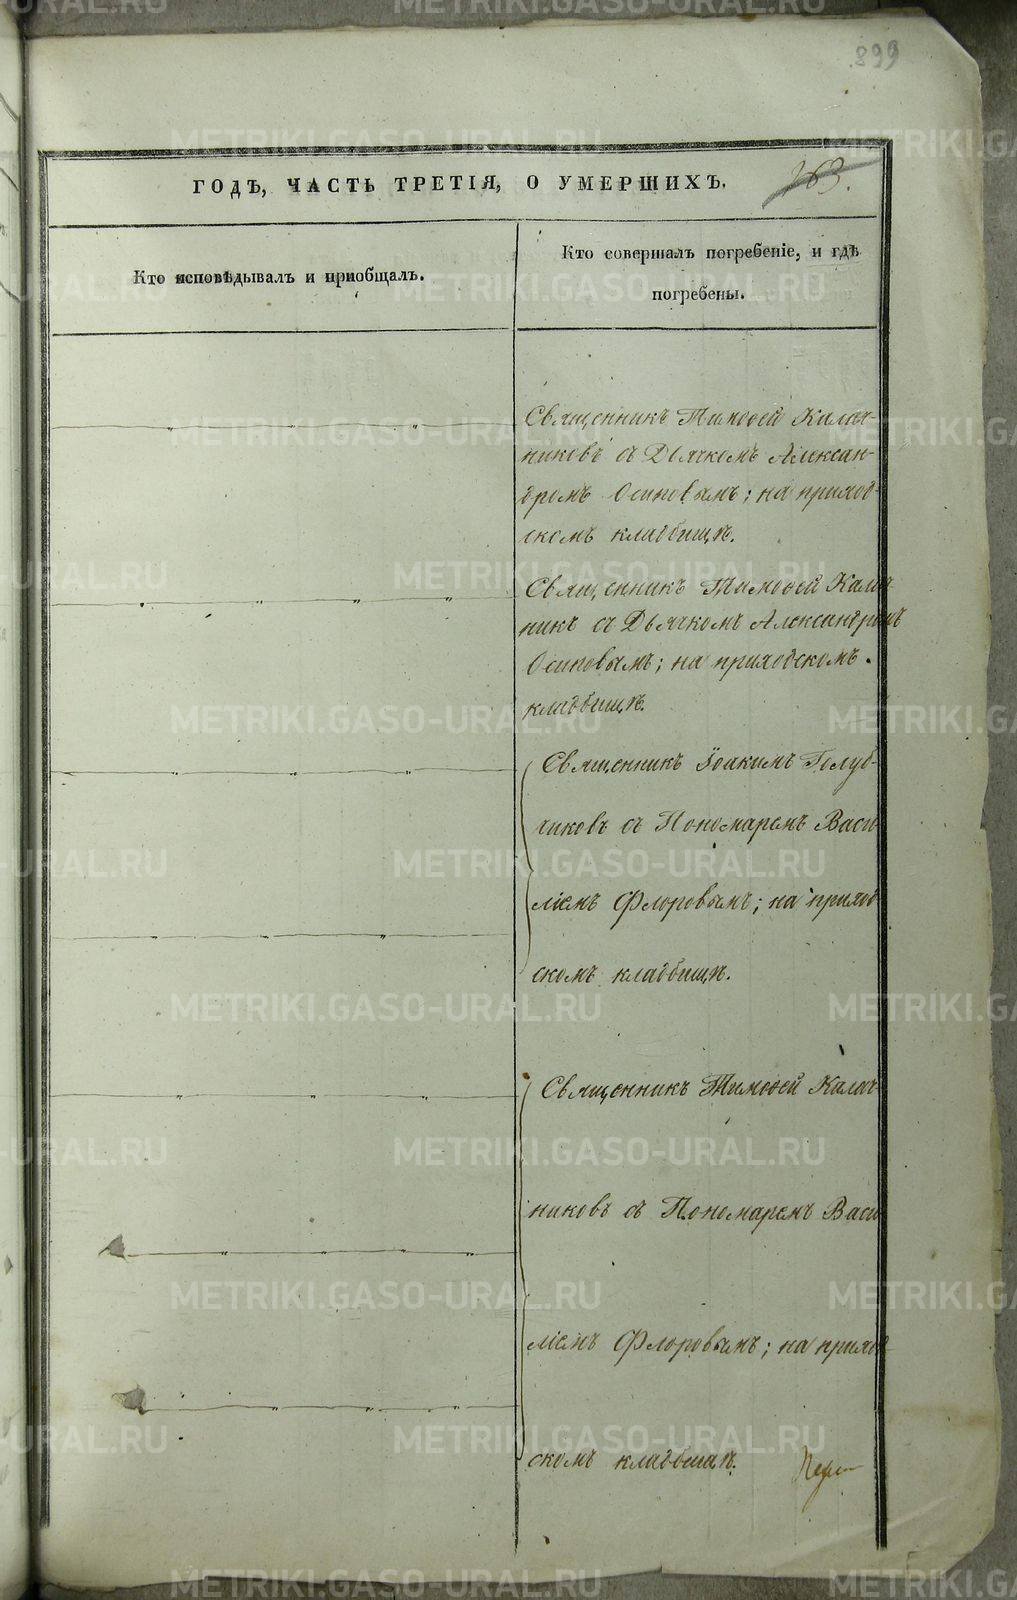 899
ГОДЪ, ЧАСТЬ ТРЕТІЯ, О УМЕРШИХЪ.
263.
Кто исповѣдывалъ и пріобщалъ.
Кто совершалъ погребеніе, и гдѣ
погребены.
Священникъ Тимоѳей Калач-
никовъ съ Дьячкомъ Алексан-
дромъ Осиповымъ; на приход-
скомъ кладбищѣ.
Священникъ Тимоѳей Калач
никъ съ Дьячкомъ Александромъ
Осиповымъ; на приходскомъ
кладбищѣ.
Священникъ Іоакимъ Голуб-
чиковъ съ Пономаремъ Васи
ліемъ Флоровымъ; на приход
скомъ кладбищѣ.
Священникъ Тимоѳей Калач
никовъ съ Пономаремъ Васи
ліемъ Флоровымъ; на приход
скомъ кладбищѣ.
METRIKI.GASO-URAL.RU